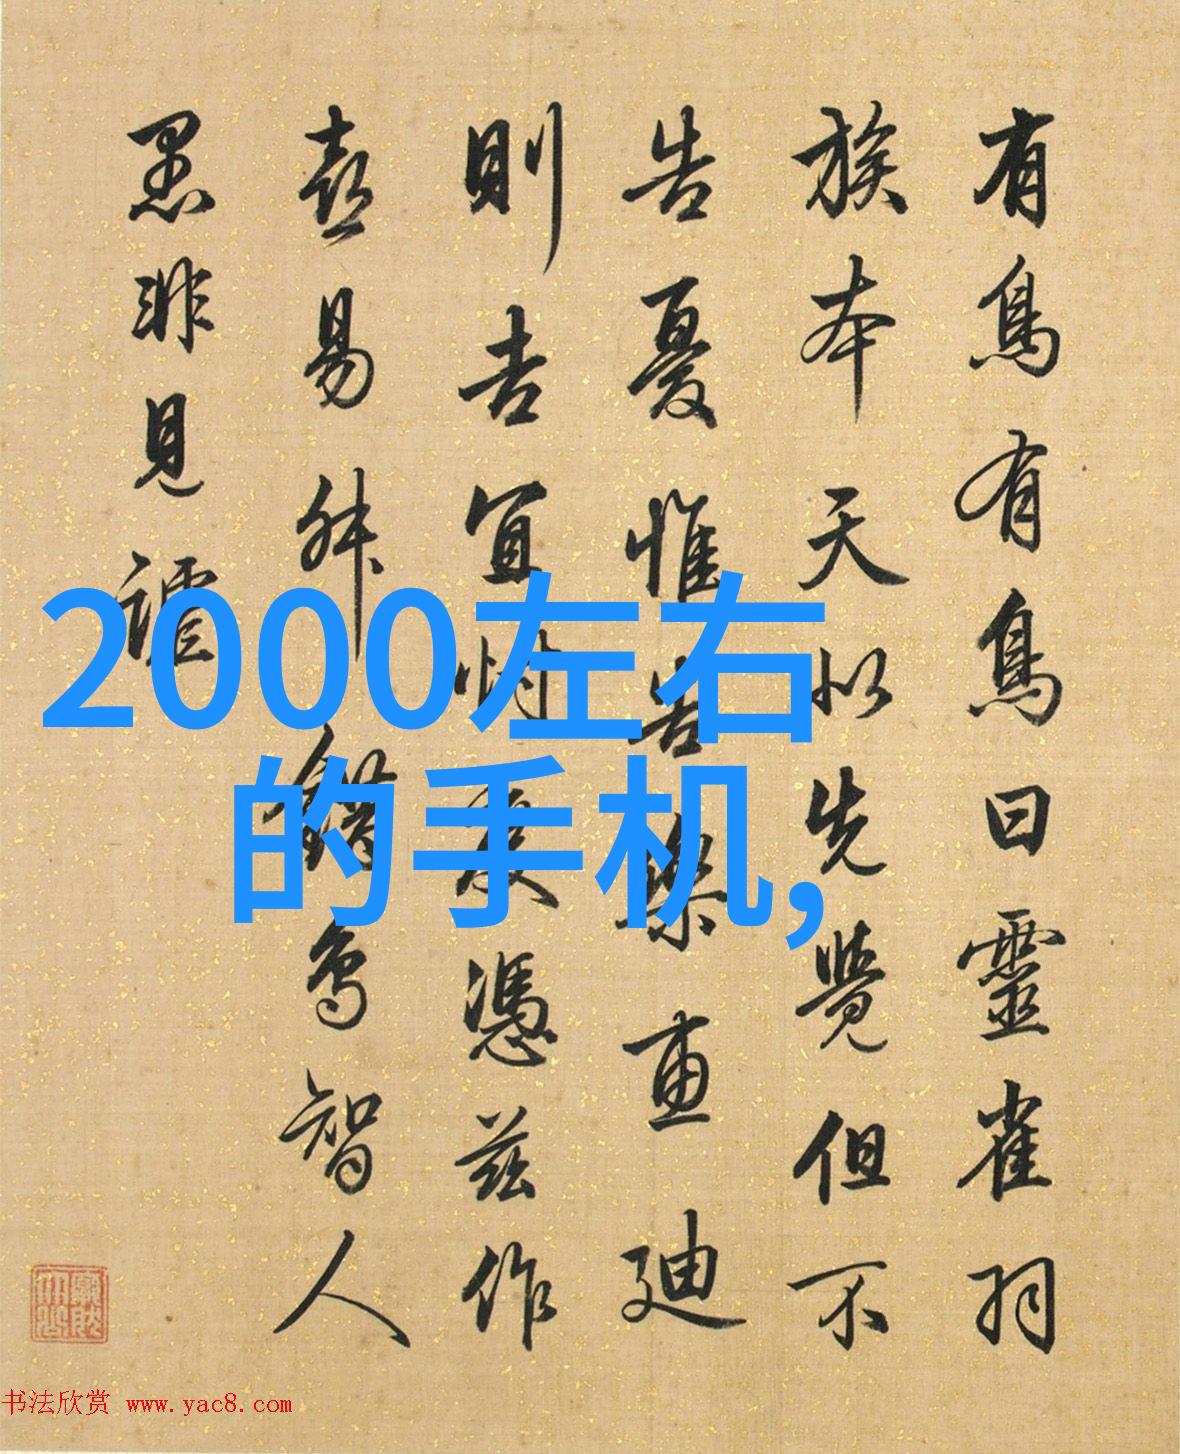 有鳥有鳥曰靈雀羽
族本天以先覺但不
告憂惟告樂惠廸
則吉宜忖度憑茲作
喜易舛錯鳥智人
愚非見謔
2000左右
的手机,
书法欣赏 www.yac8.com